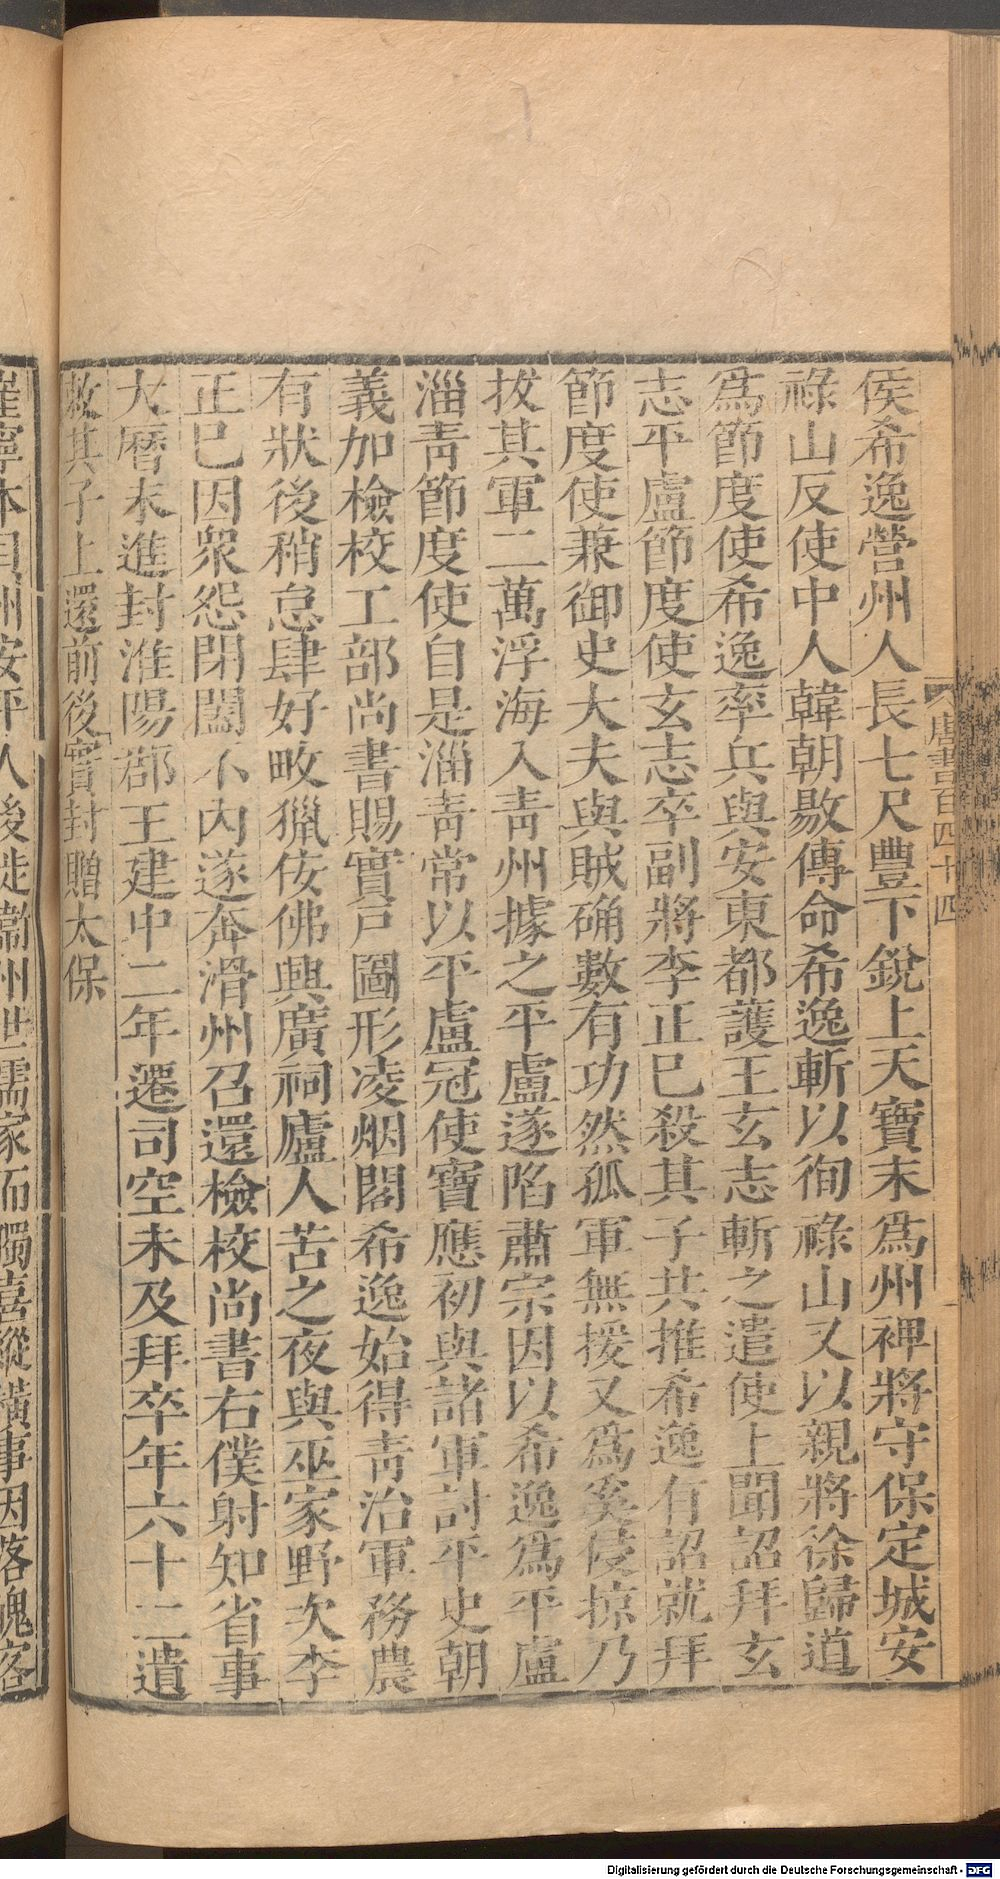 唐書百四十四
侯希逸營州人長七尺豐下銳上天寶末爲州裨將守保定城安
祿山反使中人韓朝敭傳命希逸斬以徇祿山又以親將徐歸道
爲節度使希逸率兵與安東都護王玄志斬之遣使上聞詔拜玄
志平盧節度使玄志卒副將李正已殺其子共推希逸有詔就拜
節度使兼御史大夫與賊确數有功然孤軍無援又爲奚侵掠乃
拔其軍二萬浮海入青州據之平盧遂陷肅宗因以希逸爲平盧
淄青節度使自是淄青常以平盧冠使寶應初與諸軍討平史朝
義加檢校工部尚書賜實戸圖形凌烟閣希逸始得青治軍務農
有狀後稍怠肆好畋獵佞佛興廣祠廬人苦之夜與巫家野次李
正已因衆怨閉闔不內遂奔滑州召還檢校尚書右僕射知省事
大曆末進封淮陽郡王建中二年遷司空未及拜卒年六十二遺
敕其子上還前後實封贈太保
崔寧本貝州安平人後徙衞州世儒家而獨喜縱橫事因落魄客
Digitalisierung gefördert durch die Deutsche Forschungsgemeinschaft - DFG